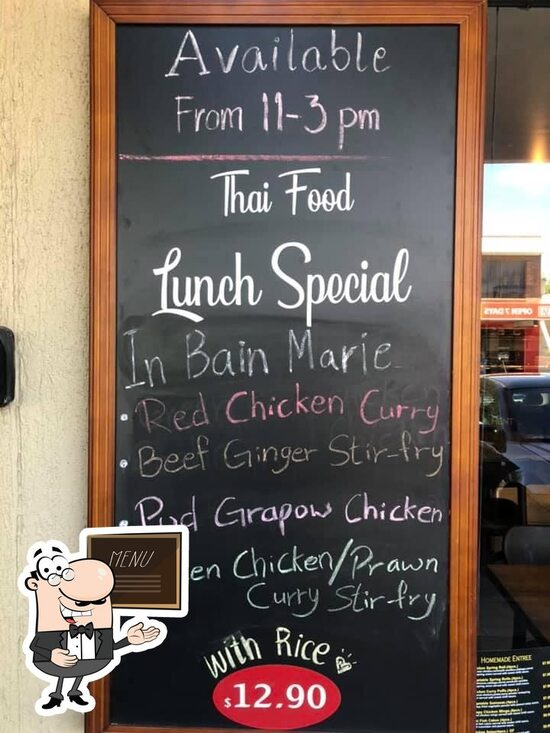 Available
From 11-3 pm
Thai Food
Lunch Special
In Bain Marie
• Red Chicken Curry
• Beef Ginger Stir-fry
• Pud Grapow Chicken
en Chicken/Prawn
Curry Stir-fry
With Rice
$12.90
MENU
OPEN 7 DAYS
HOMEMADE ENTREE